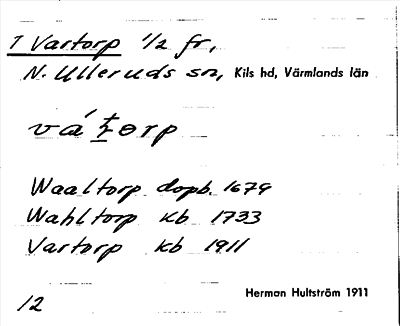 T Vartorp 1/2 fr,
N. Ulleruds sn, Kils hd, Värmlands län
Waaltorp dopb. 1679
Wahltorp kb 1733
Vartorp kb 1911
Herman Hultström 1911
12